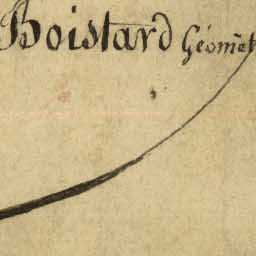 Boistard Géomet